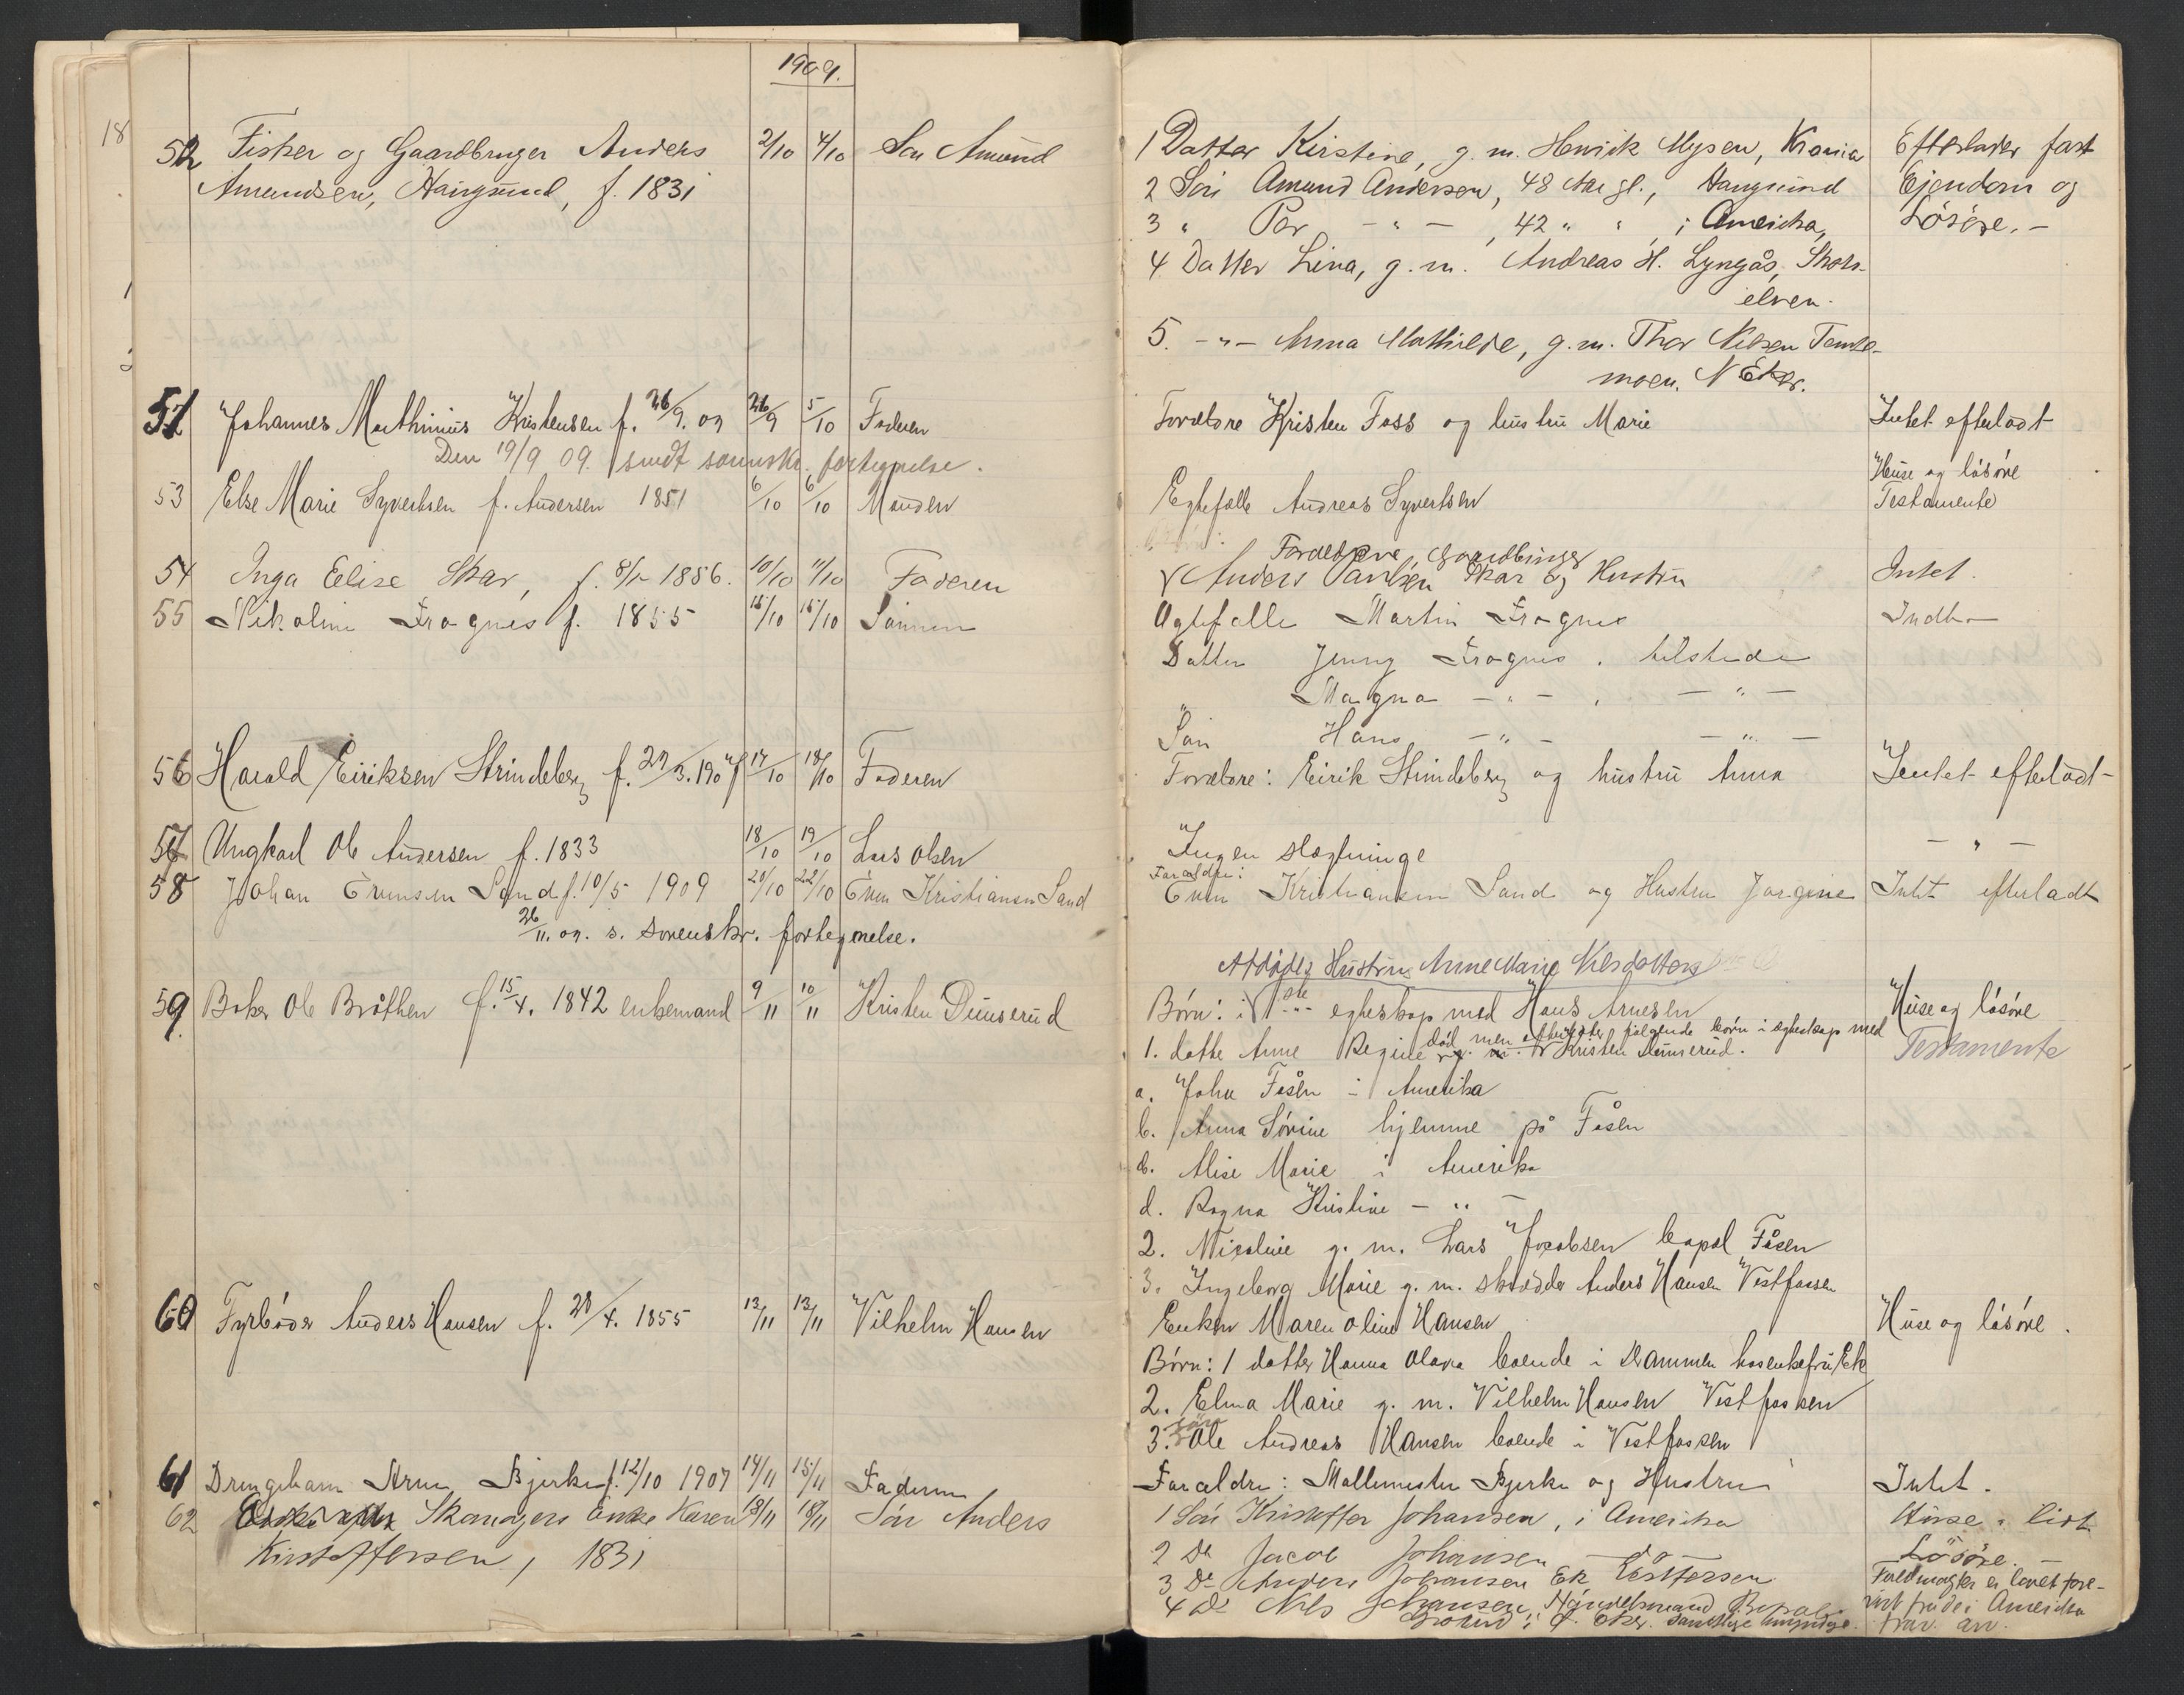 1909.
18
52 Fisker og Gaardbruger Anders 2/10 4/10 Søn Amund
Amundsen, Haugsund, f. 1831
51 Johannes Mathinius Kristensen f. 26/9. 09 26/9 5/10 Faderen
Den 19/9 09. sendt sorenskr. fortegnelse.
53 Else Marie Syvertsen f. Andersen 1851 6/10 6/10 Manden
54 Inga Elise Skar, f. 1886. 10/10 11/10 Faderen
55 Nikoline Frognes f. 1855 15/10 15/10 Sønnen
56 Harald Eiriksen Strindeberg f. 27/3. 1909 17/10 18/10 Faderen
57 Ungkarl Ole Andersen f. 1833 18/10 19/10 Lars Olsen
58 Johan Evensen Sand f. 10/5 1909 20/10 22/10 Even Kristiansen Sand
26/11. 09. s. sorenskr. fortegnelse.
59. Boker Ole Bråthen f. 15/4. 1842 enkemand 9/11 10/11 Kristen Dunserud
60 Fyrbøder Anders Hansen f. 28/4. 1855 13/11 13/11 Vilhelm Hansen
61 Drengebarn Arne Bjerke f. 12/10 1907 14/11 15/11 Faderen
62 Skomagers Enke Karen 18/11 18/11 Søn Anders
Kristoffersen, 1831
1 Datter Kirstine, g. m. Henrik Mysen, Krania Efterlader fast
2 Søn Amund Andersen, 48 Aar gl., Haugsund Ejendom og
3 " Per - " - , 42 " " , i Amerika, Løsøre. -
4 Datter Lina, g. m. Andreas H. Lyngås, Skots-
elven.
5. - " - Anna Mathilde, g. m. Thor Nilsen Temte-
moen. N Eker.
Forældre Kristen Foss og hustru Marie Intet efterladt
Huse og løsøre
Egtefælle Andreas Syvertsen Testamente
Forældrene, Gaardbruger
Anders Paulsen Skar og Hustru Intet.
Ægtefælle Martin Frognes Indb
Datter Jenny Frognes, tilstede
" Magna - " - , - " -
Søn Hans - " - - " -
Forældre: Eirik Strindeberg og hustru Anna Intet efterladt
Ingen slægtninge - " -
Forældre:
Even Kristiansen Sand og Hustru Jørgine Intet efterladt
Afdødes Hustru Anne Marie Nilsdatters
Børn: i 1ste egteskap med Hans Arnesen Huse og løsøre
død men efterlader følgende børn i egteskap med
1. datter Anne Regine g. m. Kristen Dunserud. Testamente
a. John Fåsen i Amerika
b. Anna Sørine hjemme på Fåsen
c. Alise Marie i Amerika
d. Ragna Kristine - " -
2. Nicoline g. m. Lars Jocobsen Copal Fåsen
3. Ingeborg Marie g. m. skrædder Anders Hansen Vestfossen
Enken Maren Oline Hansen Huse og løsøre.
Børn: 1 datter Hanna Olava boende i Drammen hos enkefru Ek
2. Elma Marie g. m. Vilhelm Hansen Vestfossen
søn
3. Ole Andreas Hansen boende i Vestfossen
Forældre: Møllemester Bjerke og Hustru Intet.
1 Søn Kristoffer Johansen, i Amerika Huse & lidt
2 Do Jacob Johansen do Løsøre.
3 Do Anders Johansen Ek Vestfossen Fuldmagter er lovet fore-
4 Do Nils Johansen, Handelsmand vist fra de i Amerika
i Ø. Eker. samtlige myndige. arv.